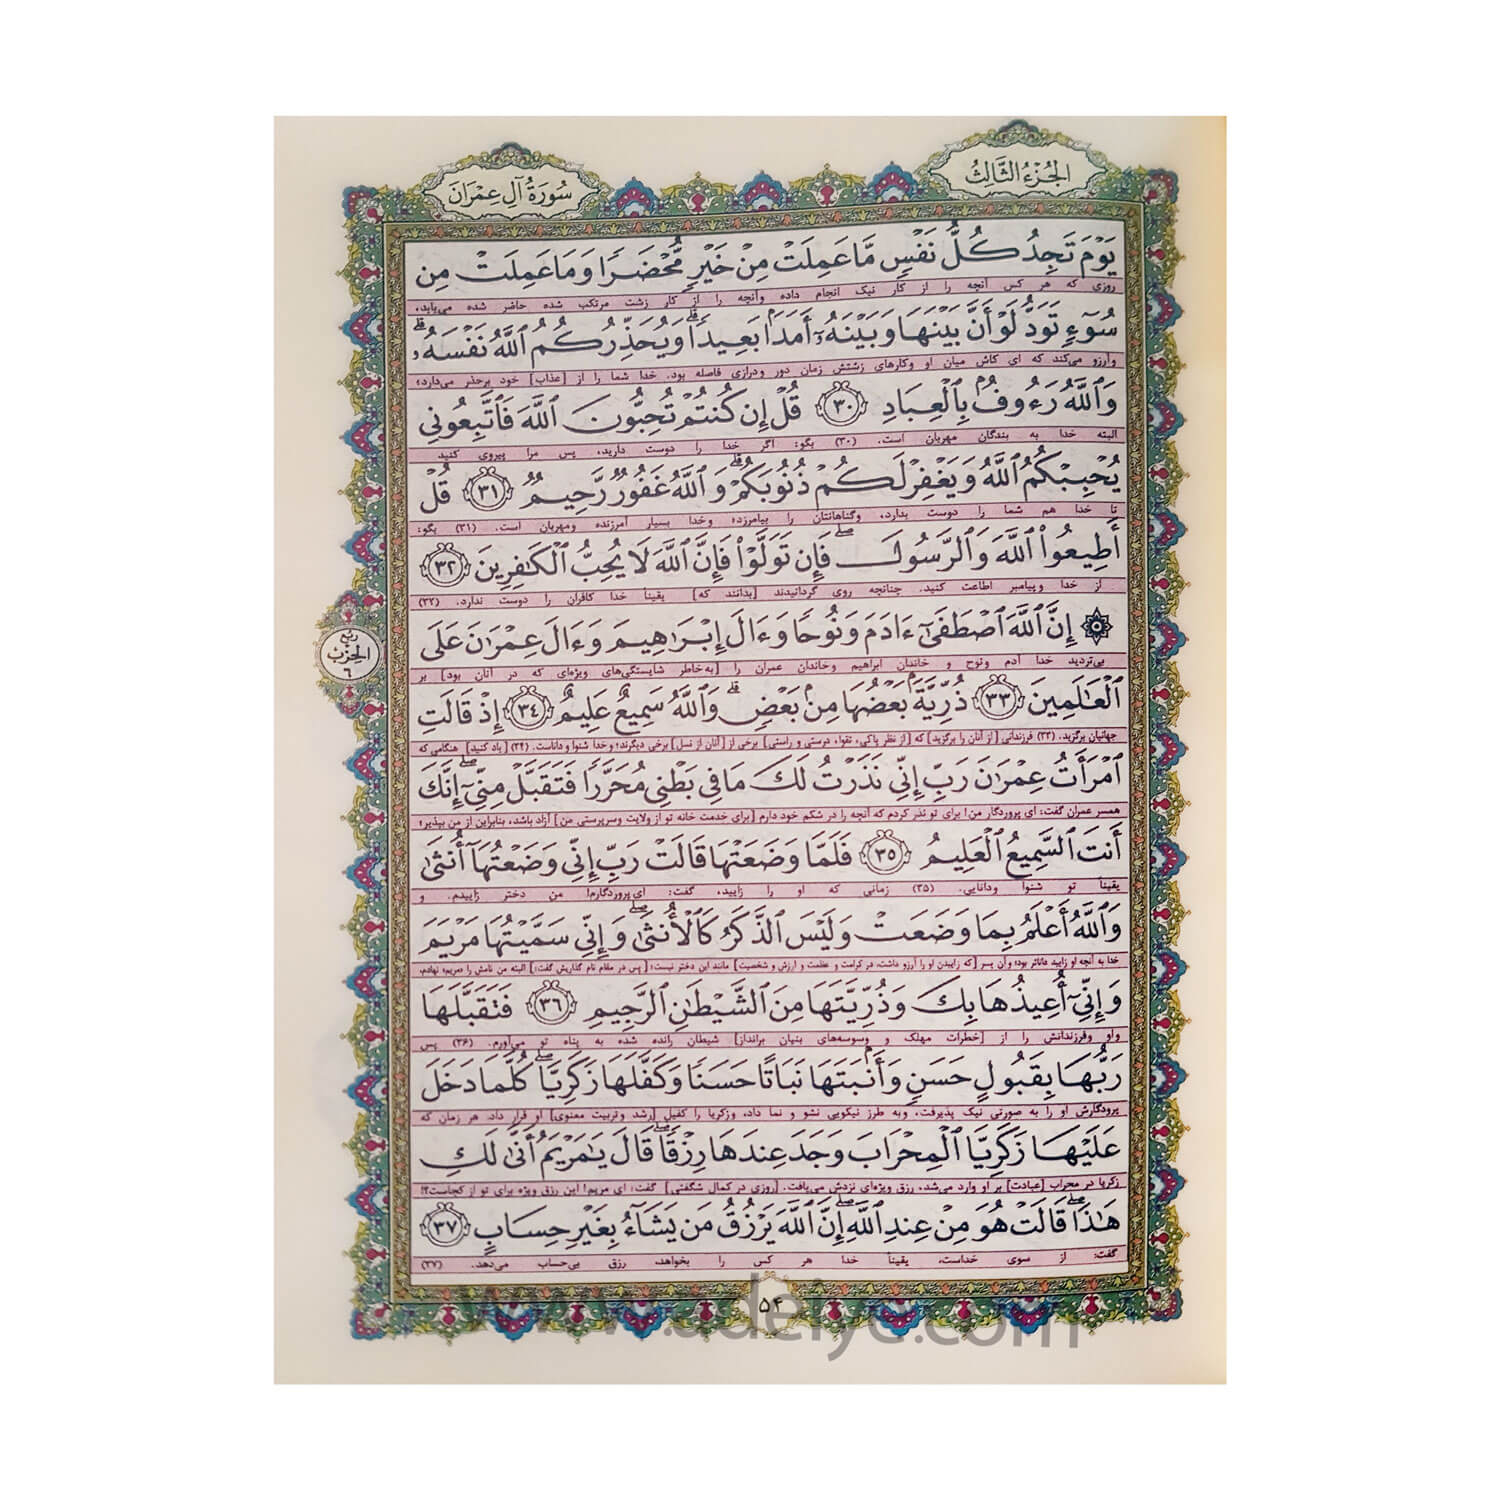 الجُزءُ الثَّالِثُ
سُورَةُ آلِ عِمْرَانَ
يَوْمَ تَجِدُ كُلُّ نَفْسٍ مَّا عَمِلَتْ مِنْ خَيْرٍ مُّحْضَرًا وَمَا عَمِلَتْ مِن
روزی که هر کس آنچه را از کار نیک انجام داده وآنچه را از کار زشت مرتکب شده حاضر شده می‌یابد،
سُوٓءٍ تَوَدُّ لَوْ أَنَّ بَيْنَهَا وَبَيْنَهُۥٓ أَمَدًۢا بَعِيدًاۗ وَيُحَذِّرُكُمُ ٱللَّهُ نَفْسَهُۥۗ
وآرزو می‌کند که ای کاش میان او وکارهای زشتش زمان دور ودرازی فاصله بود. خدا شما را از [عذاب] خود برحذر می‌دارد؛
وَٱللَّهُ رَءُوفُۢ بِٱلْعِبَادِ ۳۰ قُلْ إِن كُنتُمْ تُحِبُّونَ ٱللَّهَ فَٱتَّبِعُونِى
البته خدا به بندگان مهربان است. (۳۰) بگو: اگر خدا را دوست دارید، پس مرا پیروی کنید
يُحْبِبْكُمُ ٱللَّهُ وَيَغْفِرْ لَكُمْ ذُنُوبَكُمْۗ وَٱللَّهُ غَفُورٌ رَّحِيمٌ ۳۱ قُلْ
تا خدا هم شما را دوست بدارد، وگناهانتان را بیامرزد؛ وخدا بسیار آمرزنده ومهربان است. (۳۱) بگو:
أَطِيعُوا۟ ٱللَّهَ وَٱلرَّسُولَۖ فَإِن تَوَلَّوْا۟ فَإِنَّ ٱللَّهَ لَا يُحِبُّ ٱلْكَٰفِرِينَ ۳۲
از خدا وپیامبر اطاعت کنید. چنانچه روی گردانیدند [بدانند که] یقیناً خدا کافران را دوست ندارد. (۳۲)
۞ إِنَّ ٱللَّهَ ٱصْطَفَىٰٓ ءَادَمَ وَنُوحًا وَءَالَ إِبْرَٰهِيمَ وَءَالَ عِمْرَٰنَ عَلَى
ربع الحزب ٦
بی‌تردید خدا آدم ونوح و خاندان ابراهیم وخاندان عمران را [به‌خاطر شایستگی‌های ویژه‌ای که در آنان بود] بر
ٱلْعَٰلَمِينَ ۳۳ ذُرِّيَّةَۢ بَعْضُهَا مِنۢ بَعْضٍۗ وَٱللَّهُ سَمِيعٌ عَلِيمٌ ۳٤ إِذْ قَالَتِ
جهانیان برگزید. (۳۳) فرزندانی [از آنان را برگزید] که [از نظر پاکی، تقوا، درستی و راستی] برخی از [آنان از نسل] برخی دیگرند؛ وخدا شنوا و داناست. (۳۴) [یاد کنید] هنگامی که
ٱمْرَأَتُ عِمْرَٰنَ رَبِّ إِنِّى نَذَرْتُ لَكَ مَا فِى بَطْنِى مُحَرَّرًا فَتَقَبَّلْ مِنِّىٓۖ إِنَّكَ
همسر عمران گفت: ای پروردگار من! برای تو نذر کردم که آنچه را در شکم خود دارم [برای خدمت خانه تو از ولایت وسرپرستی من] آزاد باشد، بنابراین از من بپذیر؛
أَنتَ ٱلسَّمِيعُ ٱلْعَلِيمُ ۳٥ فَلَمَّا وَضَعَتْهَا قَالَتْ رَبِّ إِنِّى وَضَعْتُهَآ أُنثَىٰ
یقیناً تو شنوا ودانایی. (۳۵) زمانی که او را زایید، گفت: ای‌پروردگارم! من دختر زاییدم. و
وَٱللَّهُ أَعْلَمُ بِمَا وَضَعَتْ وَلَيْسَ ٱلذَّكَرُ كَٱلْأُنثَىٰۖ وَإِنِّى سَمَّيْتُهَا مَرْيَمَ
خدا به آنچه او زایید داناتر بود؛ وآن پسر [که زاییدن او را آرزو داشت، در کرامت و عظمت و ارزش و شخصیت] مانند این دختر نیست؛ [پس در مقام نام گذاریش گفت:] البته من نامش را «مریم» نهادم،
وَإِنِّىٓ أُعِيذُهَا بِكَ وَذُرِّيَّتَهَا مِنَ ٱلشَّيْطَٰنِ ٱلرَّجِيمِ ۳٦ فَتَقَبَّلَهَا
واو وفرزندانش را از [خطرات مهلک و وسوسه‌های بنیان برانداز] شیطان رانده شده به پناه تو می‌آورم. (۳۶) پس
رَبُّهَا بِقَبُولٍ حَسَنٍ وَأَنۢبَتَهَا نَبَاتًا حَسَنًا وَكَفَّلَهَا زَكَرِيَّاۖ كُلَّمَا دَخَلَ
پرودگارش او را به صورتی نیک پذیرفت، وبه طرز نیکویی نشو و نما داد، وزکریا را کفیل [رشد وتربیت معنوی] او قرار داد. هر زمان که
عَلَيْهَا زَكَرِيَّا ٱلْمِحْرَابَ وَجَدَ عِندَهَا رِزْقًاۖ قَالَ يَٰمَرْيَمُ أَنَّىٰ لَكِ
زکریا در محراب [عبادت] بر او وارد می‌شد، رزق ویژه‌ای نزدش می‌یافت. [روزی در کمال شگفتی] گفت: ای مریم! این رزق ویژه برای تو از کجاست؟!
هَٰذَاۖ قَالَتْ هُوَ مِنْ عِندِ ٱللَّهِۖ إِنَّ ٱللَّهَ يَرْزُقُ مَن يَشَآءُ بِغَيْرِ حِسَابٍ ۳٧
گفت: از سوی خداست، یقیناً خدا هر کس را بخواهد، رزق بی‌حساب می‌دهد. (۳۷)
۵۴
www.adeiye.com